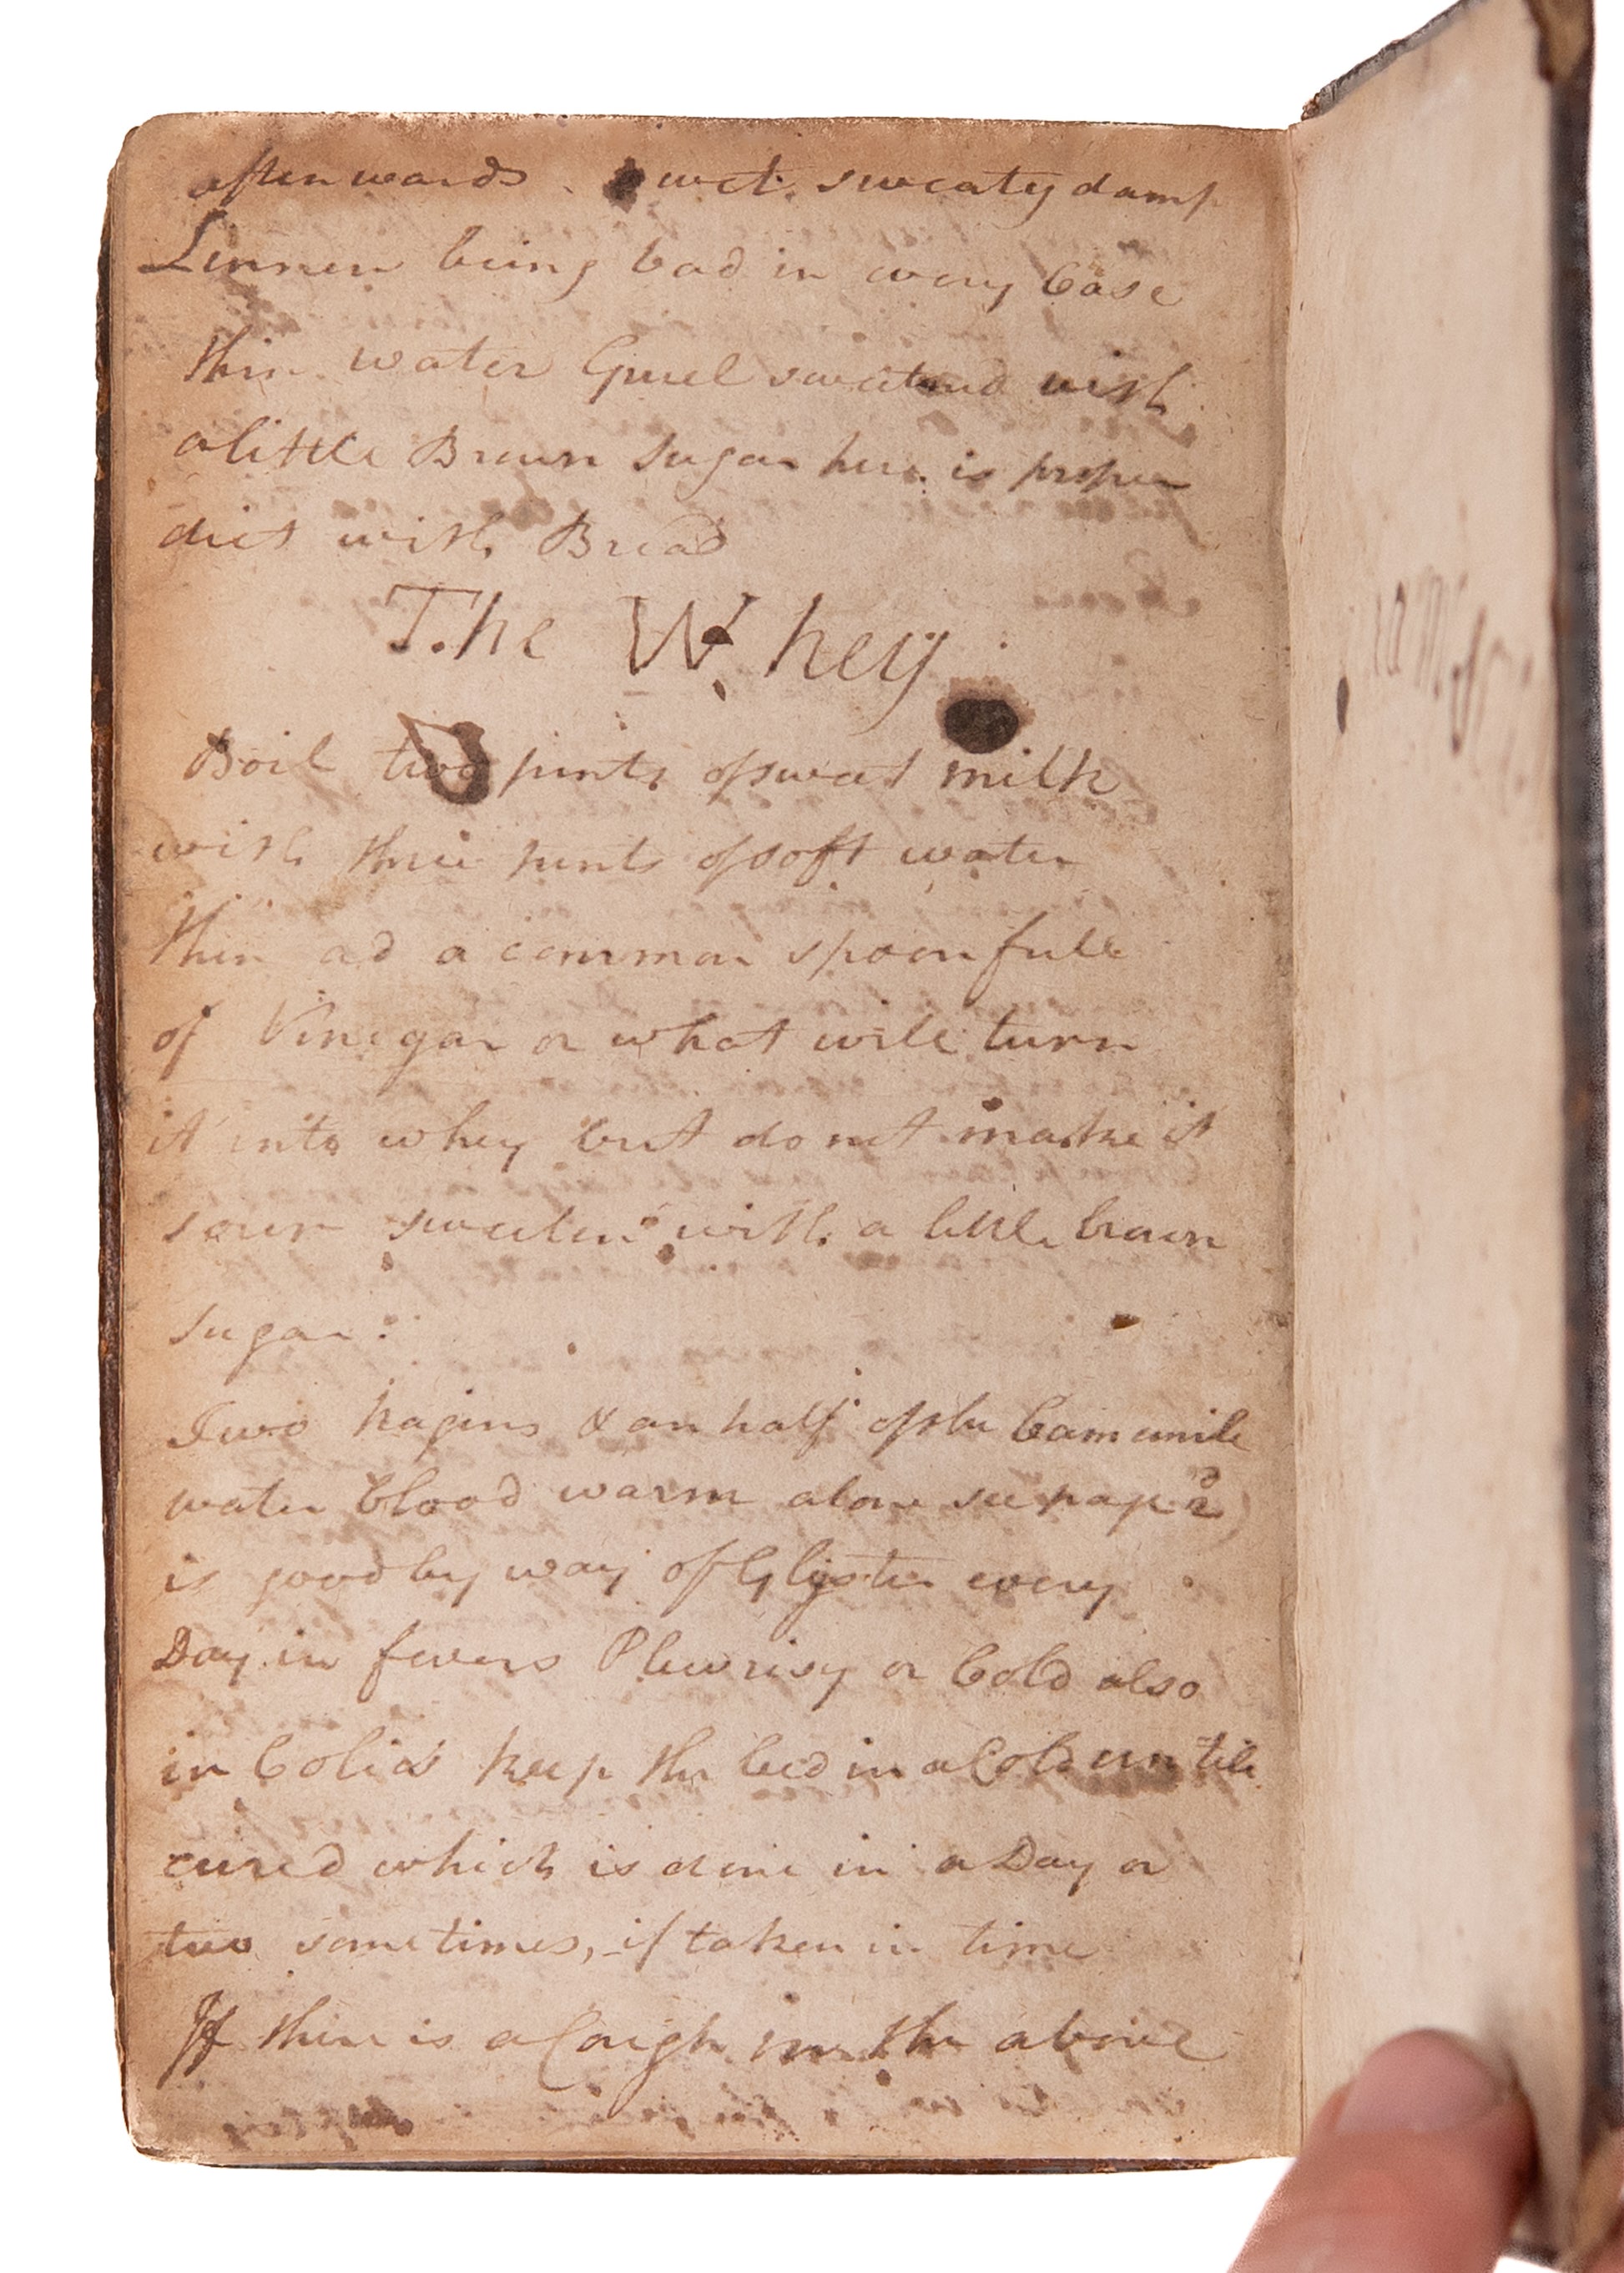 afterwards wet sweaty damp
Linnen being bad in every Case
thin water Gruel sweetend with
a little Brown sugar here is proper
diet with Bread
The Whey
Boil two pints of sweat milk
with three pints of soft water
then ad a common spoonfull
of Vinegar or what will turn
it into whey but do not make it
sour sweeten with a little brown
sugar
Two & an half of the Camumile
water blood warm alone see page 2
is good by way of Glyster every
Day in fevers Plewrisy or Cold also
in Colics keep the bed in a Cold until
cured which is done in a Day or
two sometimes, if taken in time
If there is a Cough in the above